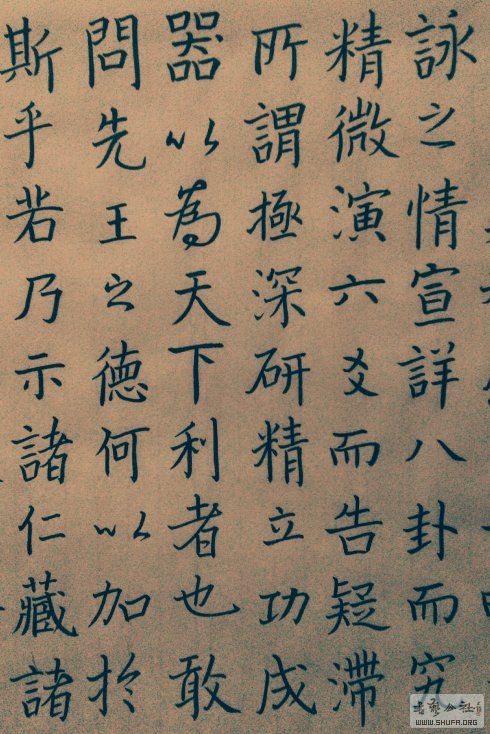 詠之情宣詳八卦而穷
精微演六爻而告疑滯
所謂極深研精立功成
器以為天下利者也敢
問先王之德何以加於
斯乎若乃示諸仁藏諸
WWW.SHUFA.ORG